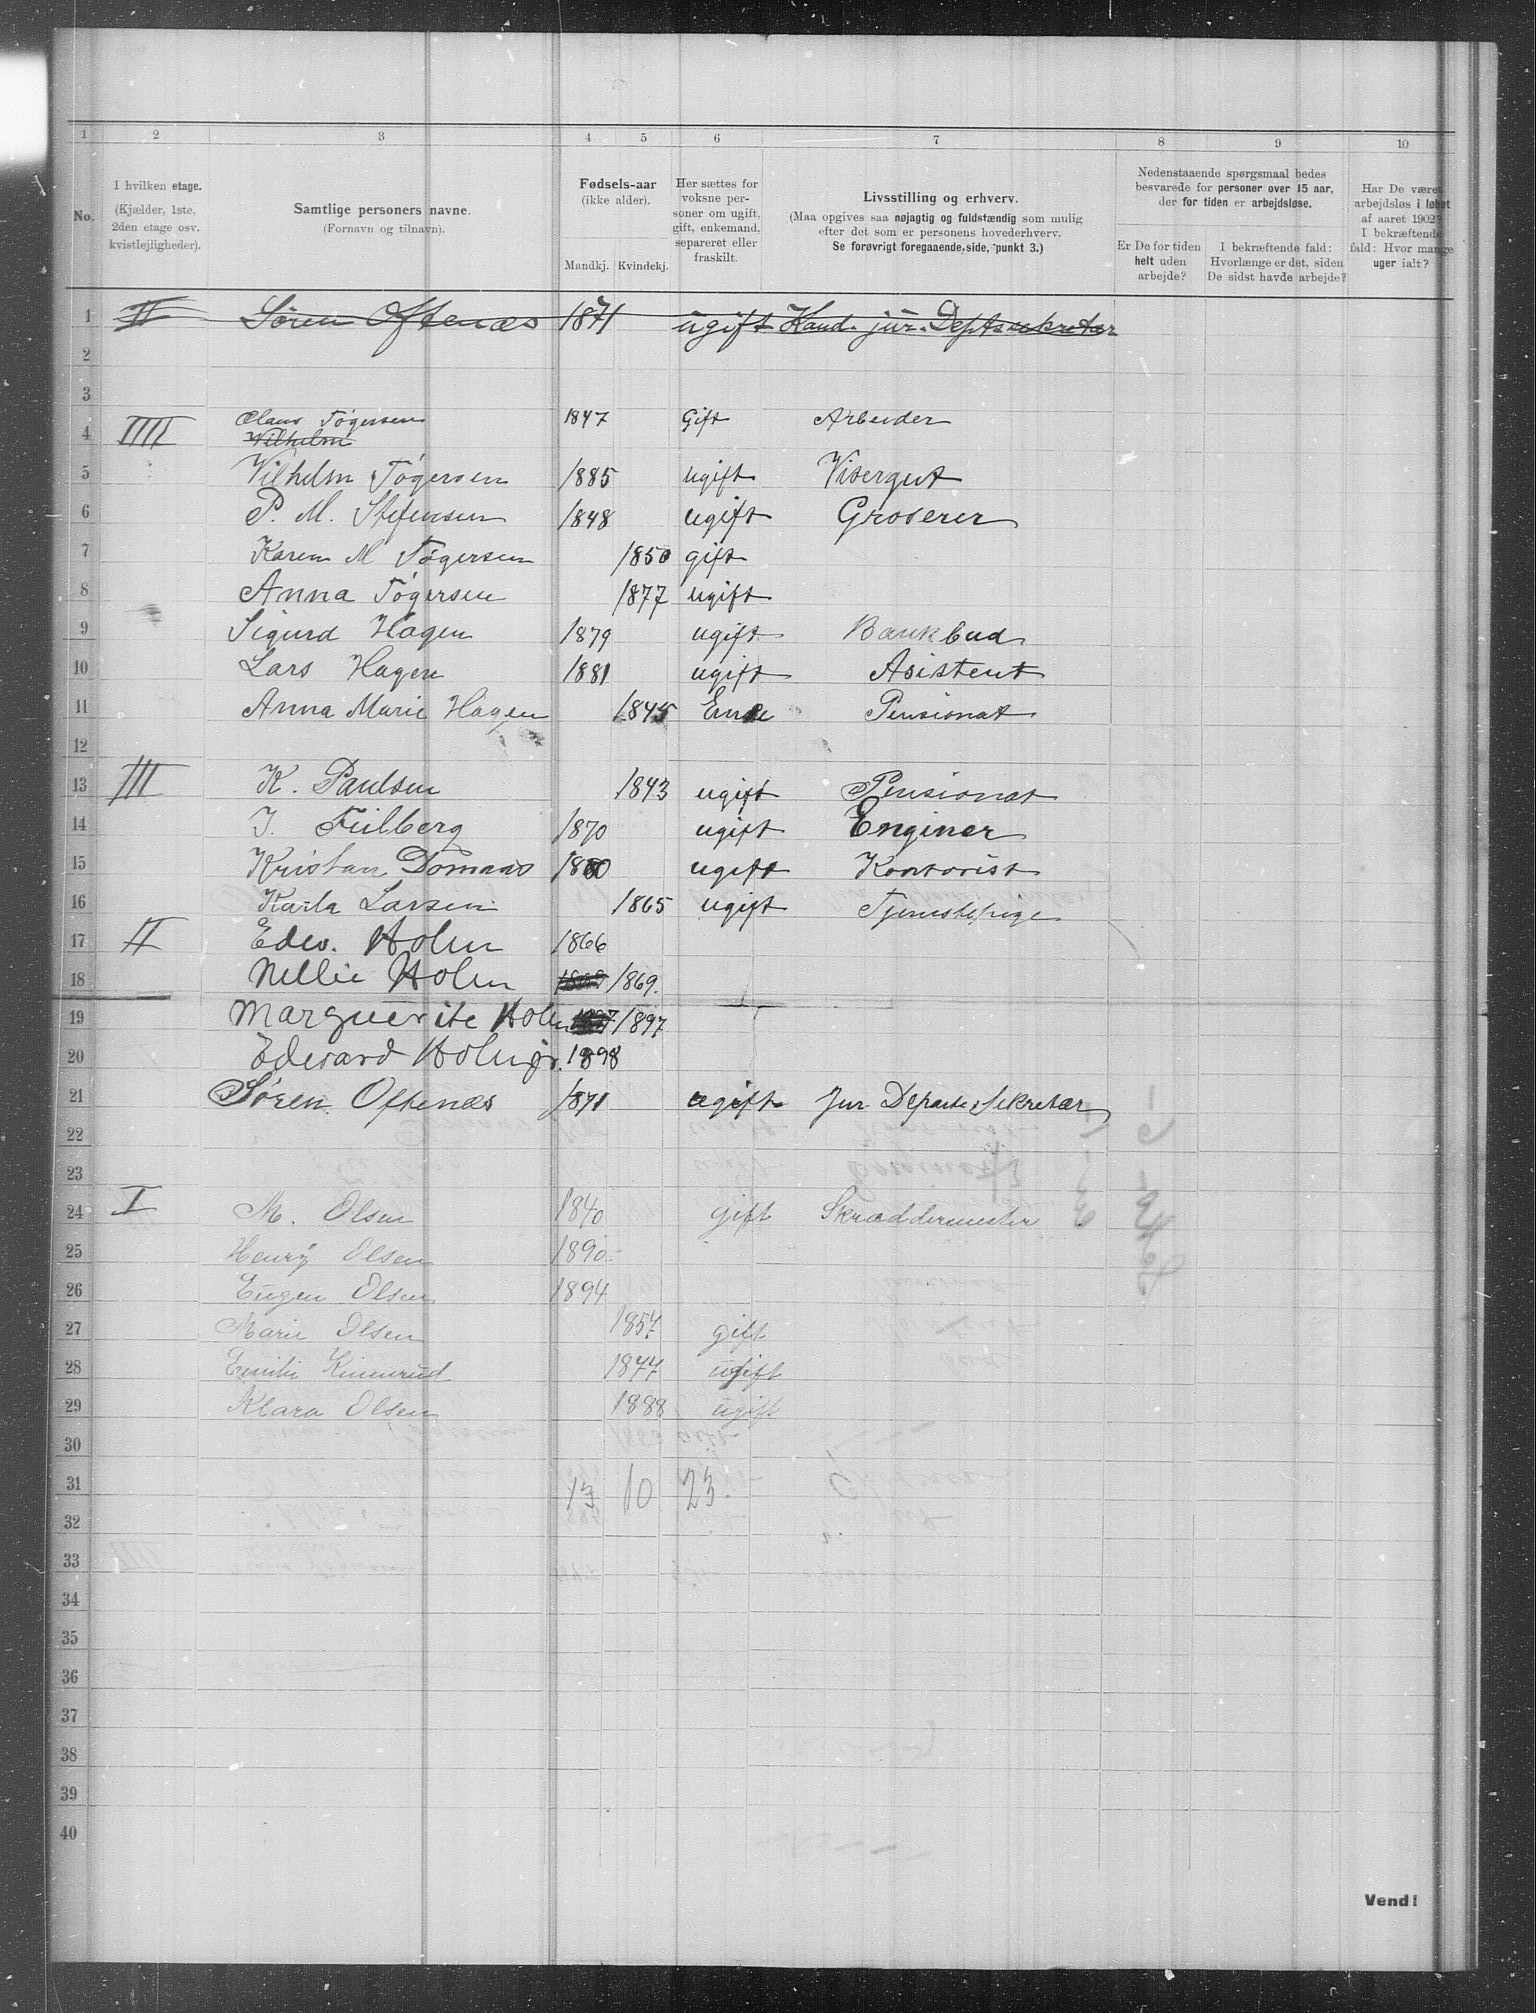 1 2 3 4 5 6 7 8 9 10
No.
I hvilken etage.
(Kjælder, 1ste.
2den etage osv.
kvistlejligheder).
Samtlige personers navne.
(Fornavn og tilnavn).
Fødsels-aar
(ikke alder).
Mandkj. Kvindekj.
Her sættes for
voksne per-
soner om ugift,
gift, enkemand,
separeret eller
fraskilt.
Livsstilling og erhverv.
(Maa opgives saa nøjagtig og fuldstændig som mulig
efter det som er personens hovederhverv.
Se forøvrigt foregaaende side, punkt 3.)
Nedenstaaende spørgsmaal bedes
besvarede for personer over 15 aar,
der for tiden er arbejdsløse.
Er De for tiden
helt uden
arbejde?
I bekræftende fald:
Hvorlænge er det, siden
De sidst havde arbejde?
Har De været
arbejdsløs i løbet
af aaret 1902?
I bekræftende
fald: Hvor mange
uger ialt?
1 II Søren Oftenæs 1871 ugift Kand. jur. Deptssekretær
2
3
Claus Tøgersen 1847 Gift Arbeider
4 IIII Wilhelm
5 Vilhelm Tøgersen 1885 ugift Visergut
6 P. M. Stefensen 1848 ugift Groserer
7 Karen M Tøgersen 1850 gift
8 Anna Tøgersen 1877 ugift
9 Sigurd Hagen 1879 ugift Bankbud
10 Lars Hagen 1881 ugift Asistent
11 Anna Marie Hagen 1845 Enke Pensionat
12
13 III K. Paulsen 1843 ugift Pensionat
14 J. Fulberg 1870 ugift Enginer
15 Kristan Domaas ugift Kontorist
16 Karla Larsen 1865 ugift Tjenestepige
17 II Edw. Holm 1866
18 Nellie Holm 1869.
19 Marguerite Holm 1897
20 Edward Holm jr. 1898
21 Søren Oftenæs 1871 ugift Jur Departs. Sekretær
22
23
24 I M. Olsen 1840 gift Skræddermester
25 Henry Olsen 1890
26 Eugen Olsen 1894
27 Marie Olsen 1857 gift
28 Emilie Kinnerud 1877 ugift
29 Klara Olsen 1888 ugift
30
31 13 10 23.
32
33
34
35
36
37
38
39
40
Vend!